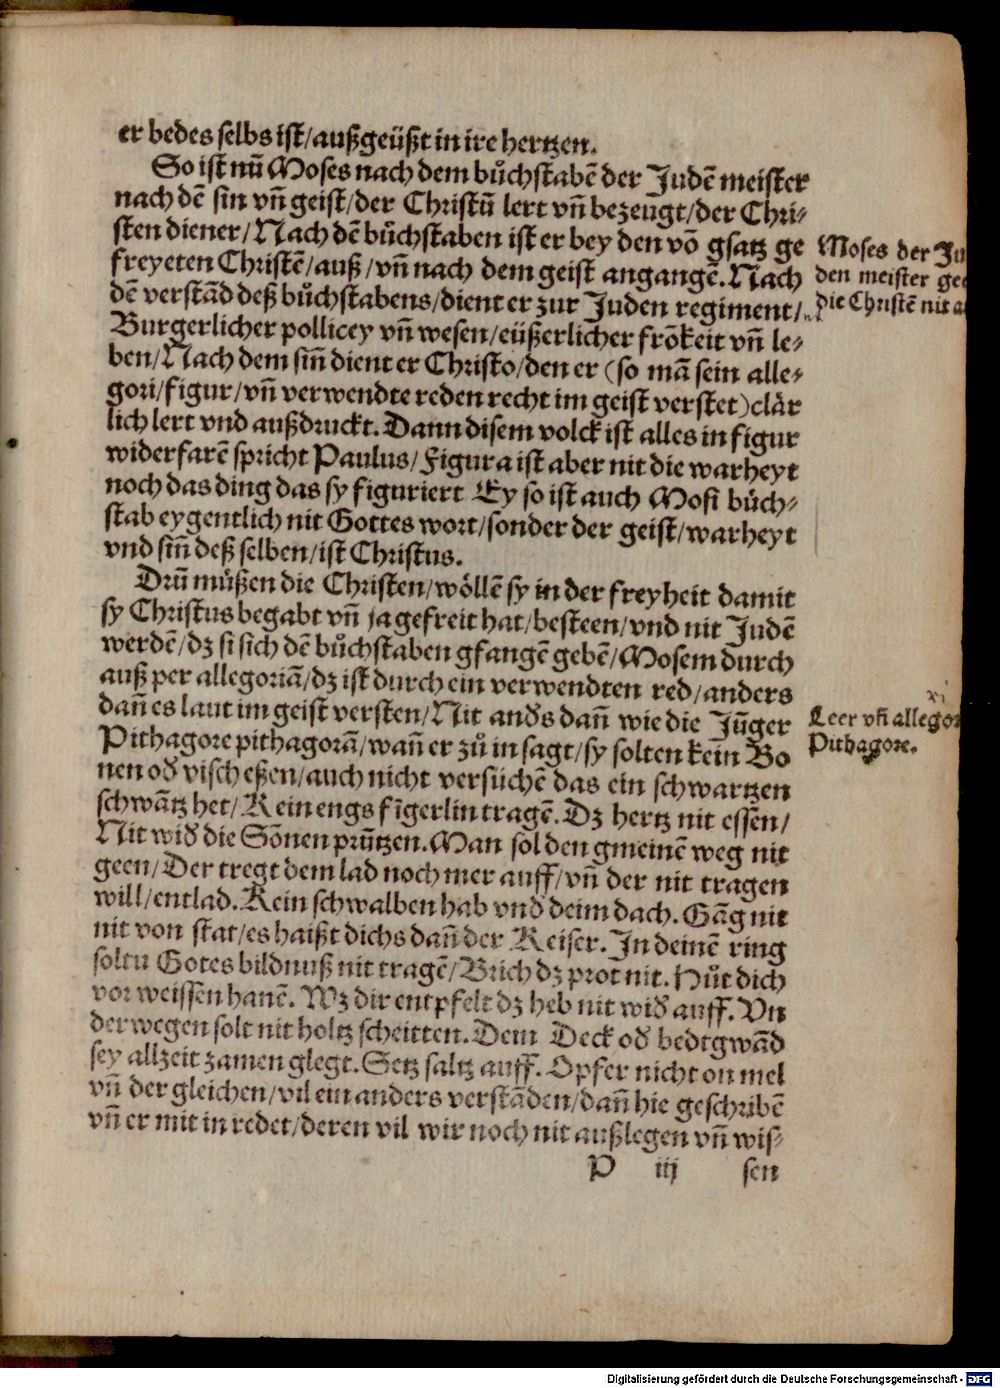 er bedes selbs ist/außgeüßt in ire hertzen.
So ist nũ Moses nach dem bůchstabẽ der Judẽ meister
nach dẽ sin vñ geist/der Christũ lert vñ bezeugt/der Chri-
sten diener/Nach dẽ bůchstaben ist er bey den võ gsatz ge
freyeten Christẽ/auß/vñ nach dem geist angangẽ. Nach
dẽ verstãd deß bůchstabens/dient er zur Juden regiment/
Burgerlicher pollicey vñ wesen/eüßerlicher frõkeit vñ le-
ben/Nach dem siñ dient er Christo/den er (so mã sein alle-
gori/figur/vñ verwendte reden recht im geist verstet)clär
lich lert vnd außdruckt. Dann disem volck ist alles in figur
widerfarẽ spricht Paulus/Figura ist aber nit die warheyt
noch das ding das sy figuriert Ey so ist auch Mosi bůch-
stab eygentlich nit Gottes wort/sonder der geist/warheyt
vnd siñ deß selben/ist Christus.
Drũ müßen die Christen/wöllẽ sy in der freyheit damit
sy Christus begabt vñ ja gefreit hat/besteen/vnd nit Judẽ
werdẽ/dz si sich dẽ bůchstaben gfangẽ gebẽ/Mosem durch
auß per allegoriã/dz ist durch ein verwendten red/anders
dañ es laut im geist versten/Nit anđs dañ wie die Jũger
Pithagore pithagorã/wañ er zů in sagt/sy solten kein Bo
nen ođ visch eßen/auch nicht versüchẽ das ein schwartzen
schwãtz het/Kein engs fĩgerlin tragẽ. Dz hertz nit essen/
Nit wiđ die Sõnen prũtzen. Man sol den gmeinẽ weg nit
geen/Der tregt dem lad noch mer auff/vñ der nit tragen
will/entlad. Kein schwalben hab vnđ deim dach. Gãg nit
nit von stat/es haißt dichs dañ der Keiser. In deinẽ ring
soltu Gotes bildnuß nit tragẽ/Brich dz prot nit. Hůt dich
vor weissen hanẽ. Wz dir entpfelt dz heb nit wiđ auff. Vn
derwegen solt nit holtz scheitten. Dem Deck ođ bedtgwãd
sey allzeit zamen glegt. Setz saltz auff. Opfer nicht on mel
vñ der gleichen/vil ein anders verstãden/dañ hie geschribẽ
vñ er mit in redet/deren vil wir noch nit außlegen vñ wis-
P iij sen
Moses der Ju
den meister
die Christẽ nit
Leer vñ
Pithagore.
Digitalisierung gefördert durch die Deutsche Forschungsgemeinschaft - DFG